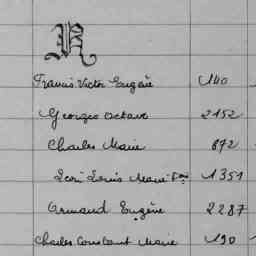 R
Francis Victor Eugène 140
Georges Octave 2152
Charles Marie 872
Louis Marie 1351
Armand Eugène 2287
Charles Constant Marie 190